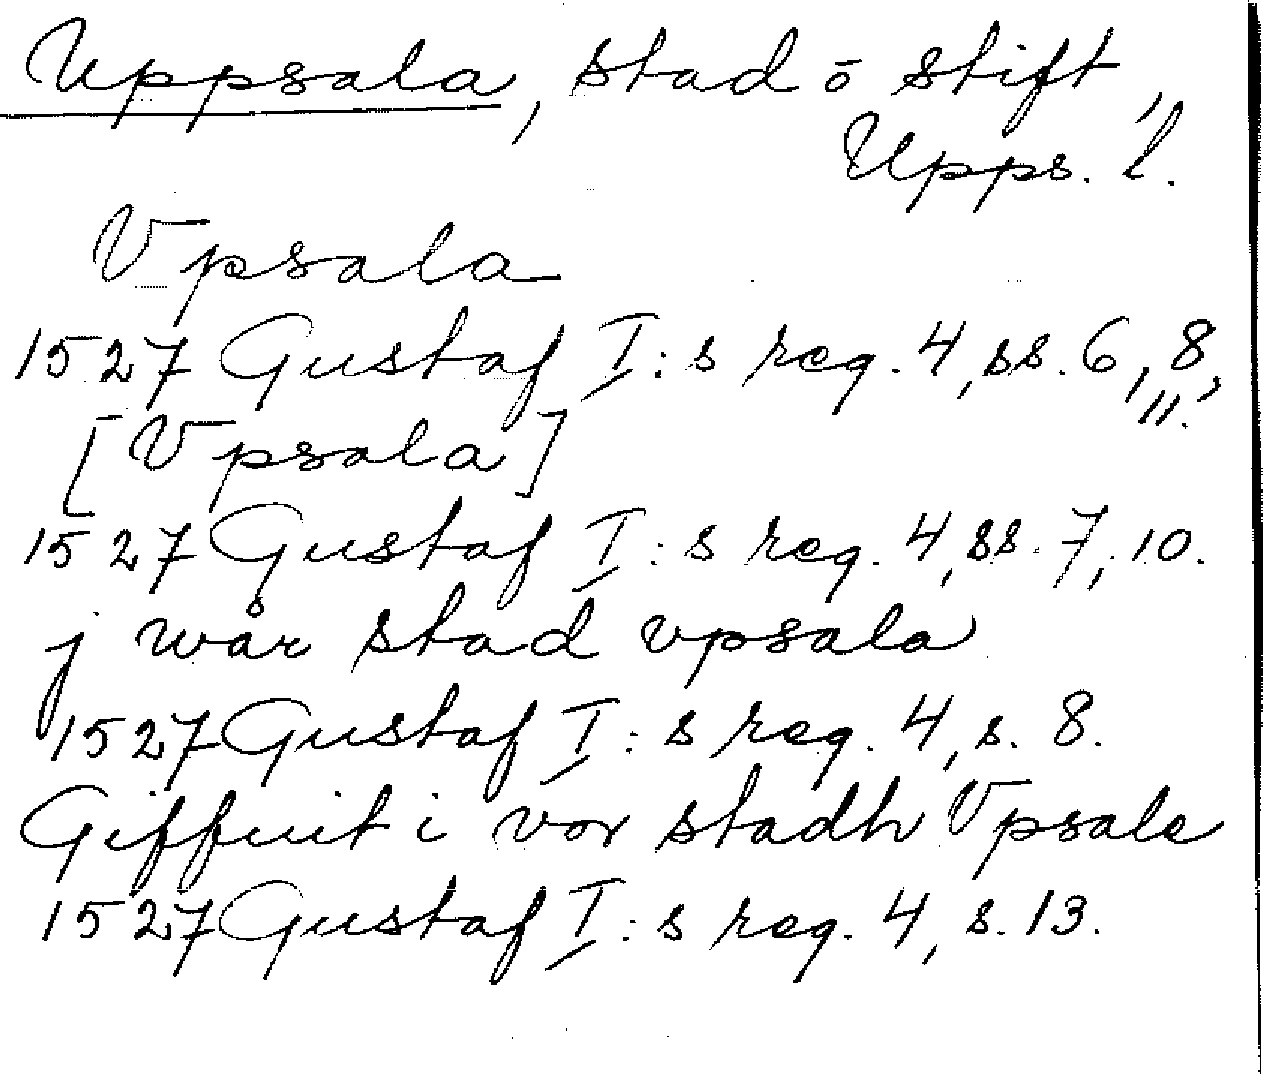 Uppsala, stad ō stift,
Upps. l.
Vpsala
1527 Gustaf I:s reg. 4, ss. 6, 8,
11.
[Vpsala]
1527 Gustaf I:s reg. 4, ss. 7, 10.
j wår stad vpsala
1527 Gustaf I:s reg. 4, s. 8.
Giffuit i vor stadh Vpsale
1527 Gustaf I:s reg. 4, s. 13.